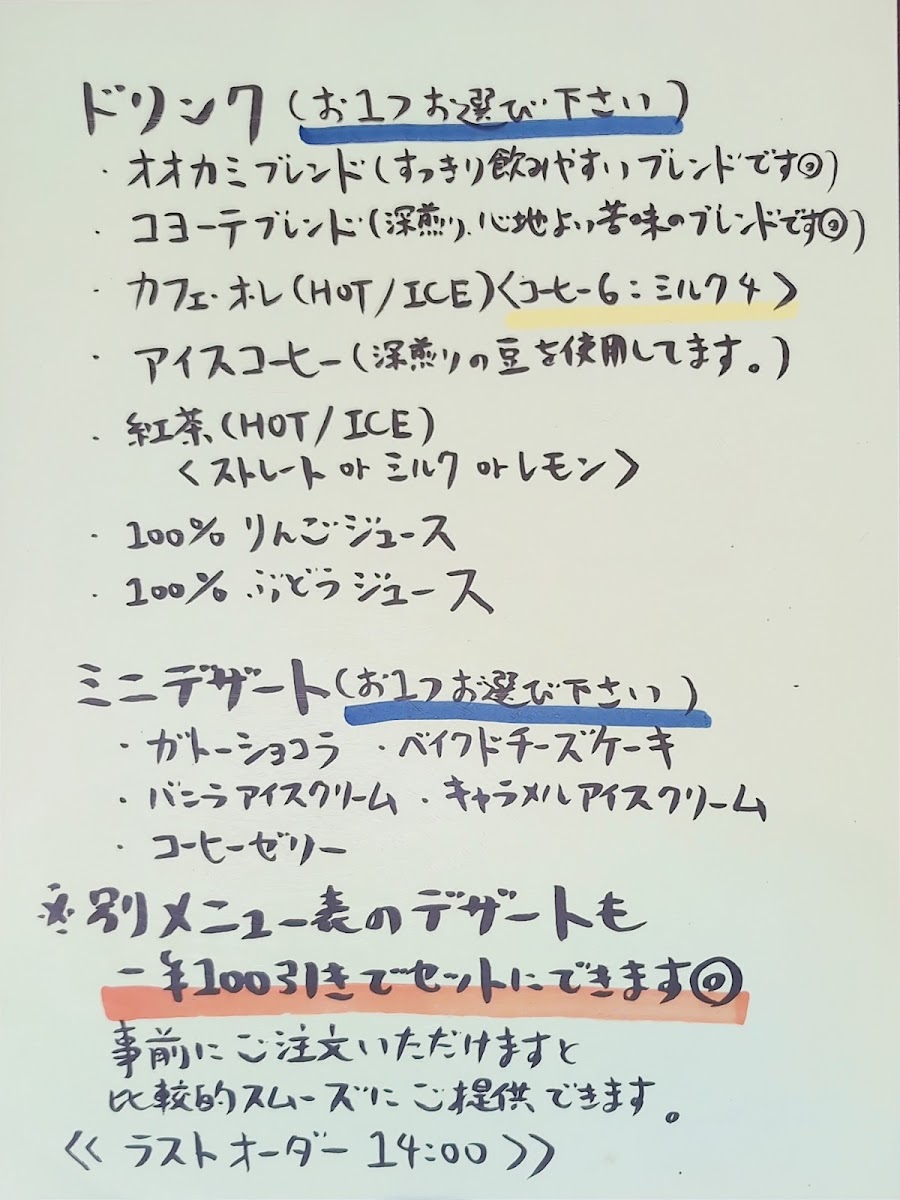 ドリンク(お1つお選び下さい)
・オオカミブレンド(すっきり飲みやすいブレンドです)
・コヨーテブレンド(深煎り、心地よい苦味のブレンドです)
・カフェ・オ・レ(HOT/ICE)<コーヒー6:ミルク4>
・アイスコーヒー(深煎りの豆を使用してます。)
・紅茶(HOT/ICE)
<ストレート or ミルク or レモン>
・100% りんごジュース
・100% ぶどうジュース
ミニデザート(お1つお選び下さい)
・ガトーショコラ ・ベイクドチーズケーキ
・バニラアイスクリーム ・キャラメルアイスクリーム
・コーヒーゼリー
※別メニュー表のデザートも
-¥100引きでセットにできます
事前にご注文いただけますと
比較的スムーズにご提供できます。
<< ラストオーダー 14:00 >>